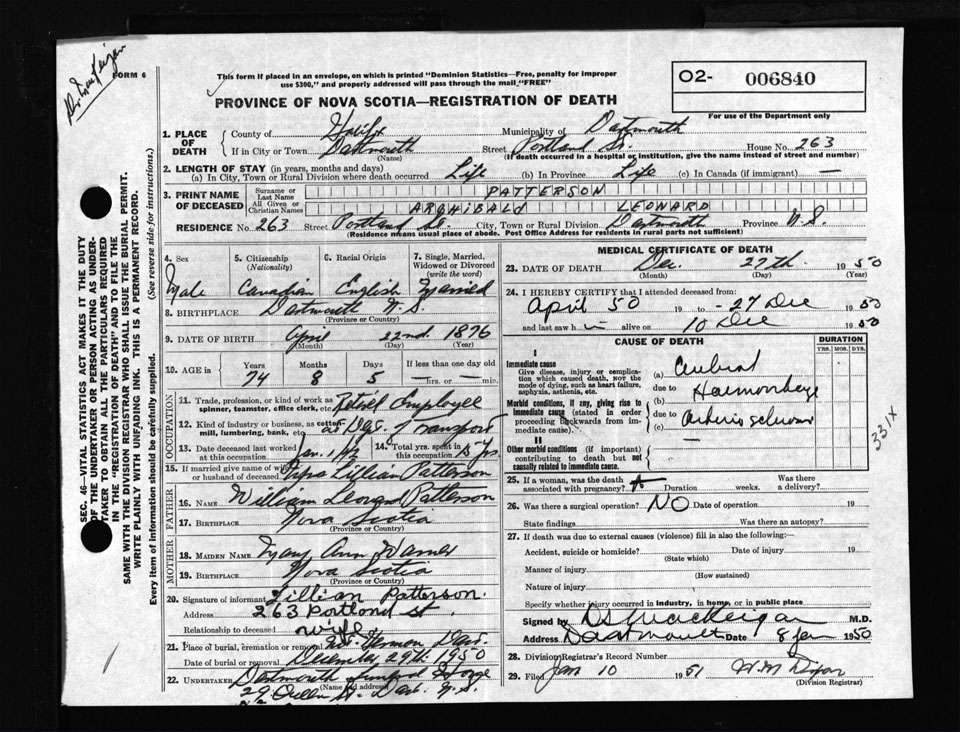 Dr. MacKeigan
FORM 6
This form if placed in an envelope, on which is printed "Dominion Statistics—Free, penalty for improper
use $300," and properly addressed will pass through the mail "FREE"
PROVINCE OF NOVA SCOTIA—REGISTRATION OF DEATH
O2- 006840
For use of the Department only
SEC. 46—VITAL STATISTICS ACT MAKES IT THE DUTY
OF THE UNDERTAKER OR PERSON ACTING AS UNDER-
TAKER TO OBTAIN ALL THE PARTICULARS REQUIRED
IN THE "REGISTRATION OF DEATH" AND TO FILE THE
SAME WITH THE DIVISION REGISTRAR WHO SHALL ISSUE THE BURIAL PERMIT.
WRITE PLAINLY WITH UNFADING INK. THIS IS A PERMANENT RECORD.
Every item of information should be carefully supplied. (See reverse side for instructions.)
1. PLACE OF DEATH
County of Halifax Municipality of Dartmouth
If in City or Town Dartmouth Street Portland St. House No. 263
(Name) (If death occurred in a hospital or institution, give the name instead of street and number)
2. LENGTH OF STAY (in years, months and days)
(a) In City, Town or Rural Division where death occurred Life (b) In Province Life (c) In Canada (if immigrant) —
3. PRINT NAME OF DECEASED
Surname or Last Name PATTERSON
All Given or Christian Names ARCHIBALD LEONARD
RESIDENCE No. 263 Street Portland St. City, Town or Rural Division Dartmouth Province N.S.
(Residence means usual place of abode. Post Office Address for residents in rural parts not sufficient)
4. Sex 5. Citizenship (Nationality) 6. Racial Origin 7. Single, Married, Widowed or Divorced (write the word)
Male Canadian English Married
8. BIRTHPLACE Dartmouth N.S.
(Province or Country)
9. DATE OF BIRTH April 22nd. 1876
(Month) (Day) (Year)
10. AGE in Years Months Days If less than one day old
74 8 5 — hrs. or — min.
OCCUPATION
11. Trade, profession or kind of work as spinner, teamster, office clerk, etc. Retired Employee
12. Kind of industry or business, as cotton mill, lumbering, bank, etc. Dept. of Transport
13. Date deceased last worked at this occupation Jan. 14. Total yrs. spent in this occupation 15 Yrs
15. If married give name of wife or husband of deceased Lillian Patterson
FATHER
16. NAME William Leonard Patterson
17. BIRTHPLACE Nova Scotia
(Province or Country)
MOTHER
18. MAIDEN NAME Mary Ann
19. BIRTHPLACE Nova Scotia
(Province or Country)
20. Signature of informant Lillian Patterson.
Address 263 Portland St.
Relationship to deceased wife
21. Place of burial, cremation or removal Mt. Hermon Dart.
Date of burial or removal December 29th. 1950
22. UNDERTAKER Dartmouth Funeral Home
(Name and address)
29 Queen St. Dart. N.S.
MEDICAL CERTIFICATE OF DEATH
23. DATE OF DEATH Dec. 27th 1950
(Month) (Day) (Year)
24. I HEREBY CERTIFY that I attended deceased from:
April 50 - 27 Dec 1950
and last saw h im alive on 10 Dec 1950
CAUSE OF DEATH DURATION
YRS. MOS. DYS.
I
Immediate cause
Give disease, injury or complication which caused death, NOT the mode of dying, such as heart failure, asphyxia, asthenia, etc.
(a) Cerebral
due to Haemorrhage
Morbid conditions, if any, giving rise to immediate cause (stated in order proceeding backwards from immediate cause).
(b)
due to arteriosclerosis
(c) —
II
Other morbid conditions (if important) contributing to death but not causally related to immediate cause.
331X
25. If a woman, was the death associated with pregnancy? Duration weeks. Was there a delivery?
26. Was there a surgical operation? NO Date of operation 19
State findings Was there an autopsy?
27. If death was due to external causes (violence) fill in also the following:—
Accident, suicide or homicide? Date of injury 19
(State which)
Manner of injury
(How sustained)
Nature of injury
Specify whether injury occurred in industry, in home, or in public place
Signed by D S MacKeigan M.D.
Address Dartmouth Date 8 Jan 1950
28. Division Registrar's Record Number
29. Filed Jan 10 1951 W.M.
(Division Registrar)